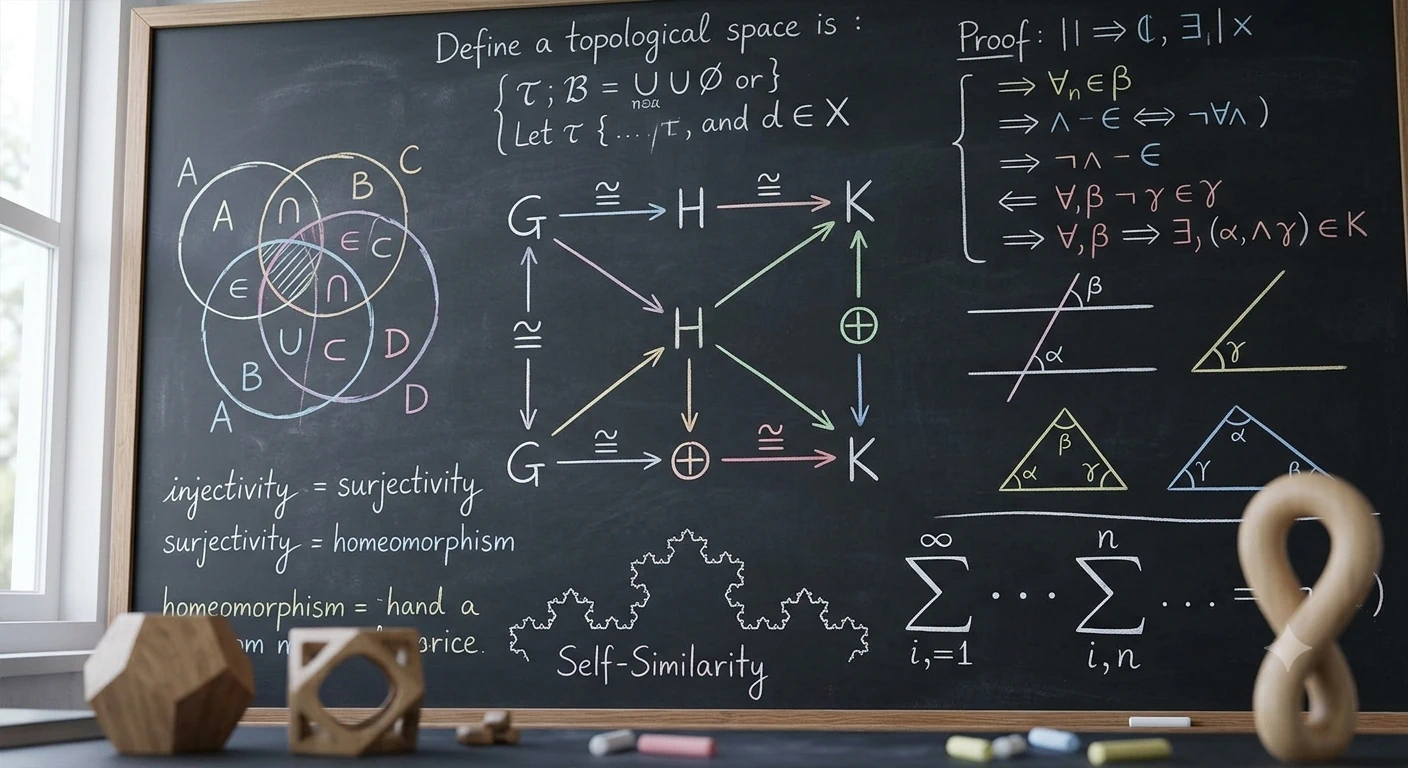 Define a topological space is :
{ τ ; B = ∪ ∪ ∅ or }
Let τ { .... , and d ∈ X
Proof: || ⇒ ₵, ∃₁| x
⇒ ∀ₙ∈β
⇒ ∧ - ∈ ⇔ ¬∀∧ )
⇒ ¬∧ - ∈
⇐ ∀,β ¬ γ ∈ γ
⇒ ∀,β ⇒ ∃,(α,∧γ) ∈ K
A C
A ∩ B
∈ C
∈ ∩
∪ C D
B
A D
G ≅ H ≅ K
≅ H ⊕
G ≅ ⊕ ≅ K
β
α γ
β α
α γ γ β
injectivity = surjectivity
surjectivity = homeomorphism
homeomorphism = hand a
Self-Similarity
∞ n
∑ ... ∑ ... = )
i,=1 i,n